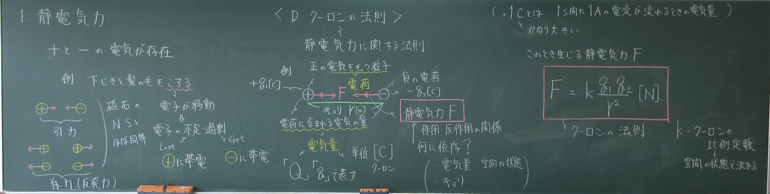 1. 静電気力
+と−の電気が存在
例 下じきと髪の毛をこする
磁石の
NSと
ほぼ同等
引力
斥力(反発力)
電子が移動
電子の不足・過剰
Lost
Get
⊕に帯電
⊖に帯電
< D. クーロンの法則 >
静電気力に関する法則
正の電気をもつ粒子
例
+q1[C]
電荷
F
負の電荷
-q2[C]
きょり r[m]
電荷に含まれる電気の量
電気量
単位 [C]
クーロン
「Q」「q」で表す
静電気力 F
作用反作用の関係
何に依存?
・電気量
・きょり
空間の状態
(・1Cとは 1s間に1Aの電流が流れるときの電気量)
かなり大きい
このとき生じる静電気力 F
F = k q1 q2 / r² [N]
クーロンの法則
k:クーロンの
比例定数
空間の状態で決まる